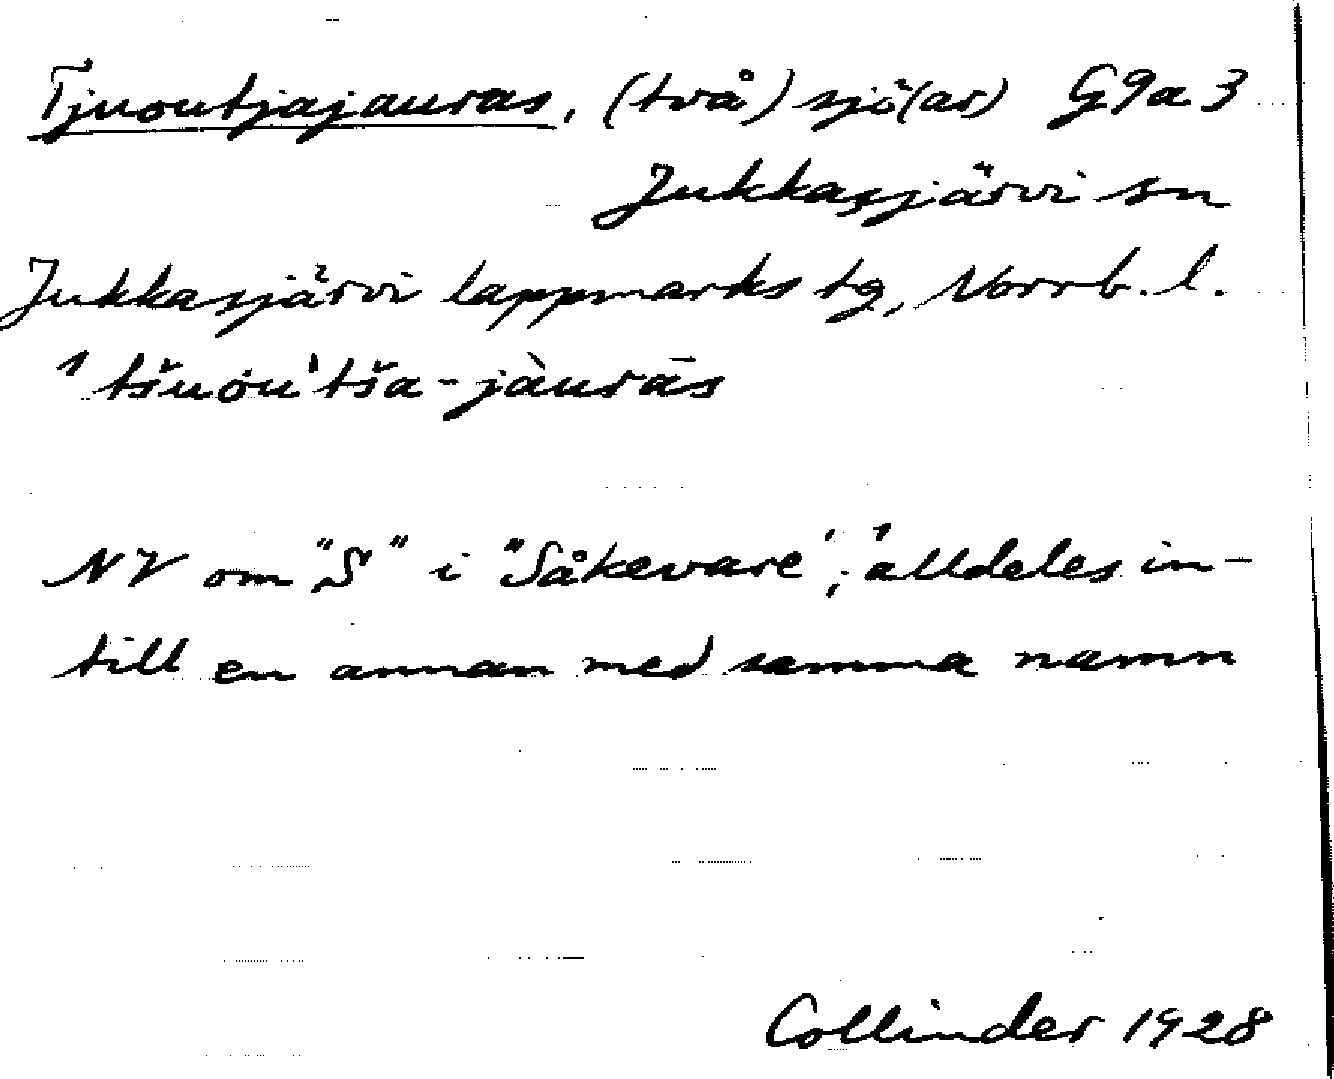 Tjuoutjajauras, (två) sjö(ar) G9a3
Jukkasjärvi sn
Jukkasjärvi lappmarks tg, Norrb. l.
tšuou'tša-jàurās
NV om "S" i "Såkevare"; alldeles in-
till en annan med samma namn
Collinder 1928